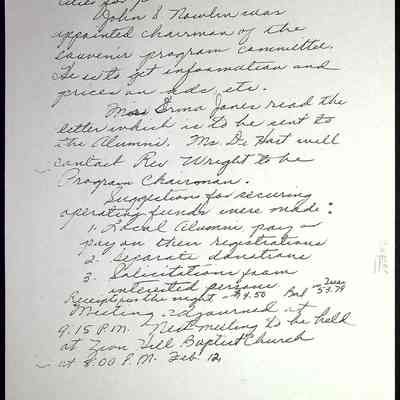 John S Nowlin was
appointed chairman of the
souvenir program committee.
He is to get information and
prices on ads, etc.
Miss Erma Jones read the
letter which is to be sent to
the Alumni. Mr. De Hart will
contact Rev Wright to be
Program Chairman.
Suggestions for securing
operating funds were made:
1. Local Alumni pay
pay on their registrations
2. Separate donations
3. Solicitations from
interested persons
Receipts for the night - $4.50 Bal in Treas 53.79
Meeting adjourned at
9:15 P.M. Next meeting to be held
at Zion Hill Baptist Church
at 8:00 P.M. Feb. 12,